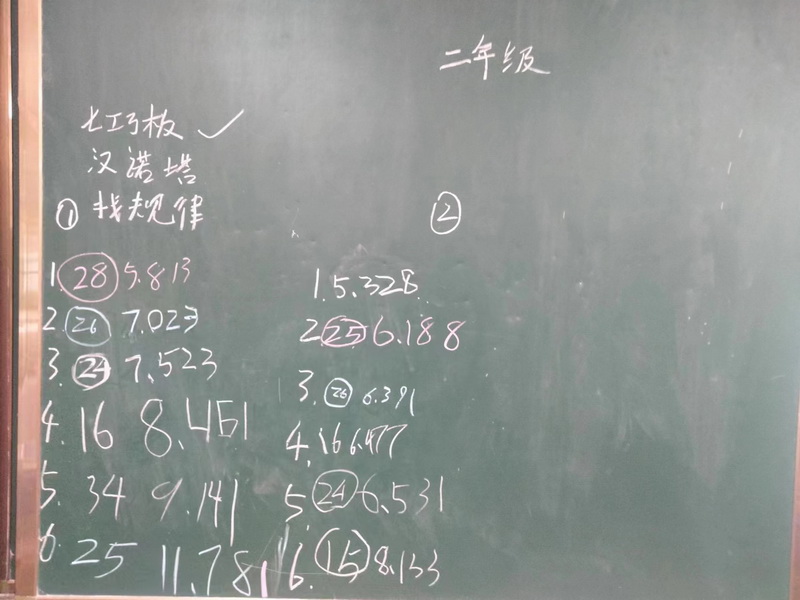 二年级
七巧板 ✓
汉诺塔
① 找规律
1. 28 5.813
2. 26 7.023
3. 24 7.523
4. 16 8.461
5. 34 9.141
6. 25 11.781
②
1. 5.328
2. 25 6.188
3. 26 6.391
4. 16 6.477
5. 24 6.531
6. 15 8.133